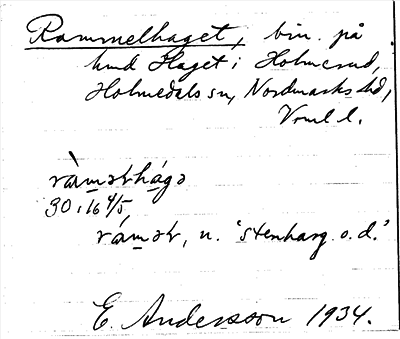 Rammelhaget, bin. på
hmd Haget i Holmerud,
Holmedals sn, Nordmarks hd,
Vrml l.
ràmәɫhágә
30:16 4/5
rámәɫ, n. 'stenharg o.d.'
E. Andersson 1934.